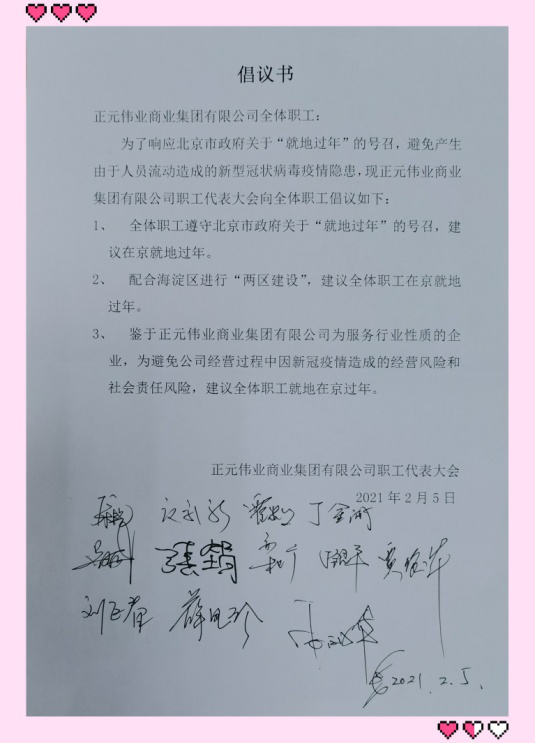 倡议书
正元伟业商业集团有限公司全体职工：
为了响应北京市政府关于“就地过年”的号召，避免产生
由于人员流动造成的新型冠状病毒疫情隐患，现正元伟业商业
集团有限公司职工代表大会向全体职工倡议如下：
1、 全体职工遵守北京市政府关于“就地过年”的号召，建
议在京就地过年。
2、 配合海淀区进行“两区建设”，建议全体职工在京就地
过年。
3、 鉴于正元伟业商业集团有限公司为服务行业性质的企
业，为避免公司经营过程中因新冠疫情造成的经营风险和
社会责任风险，建议全体职工就地在京过年。
正元伟业商业集团有限公司职工代表大会
2021 年 2 月 5 日
2021.2.5.